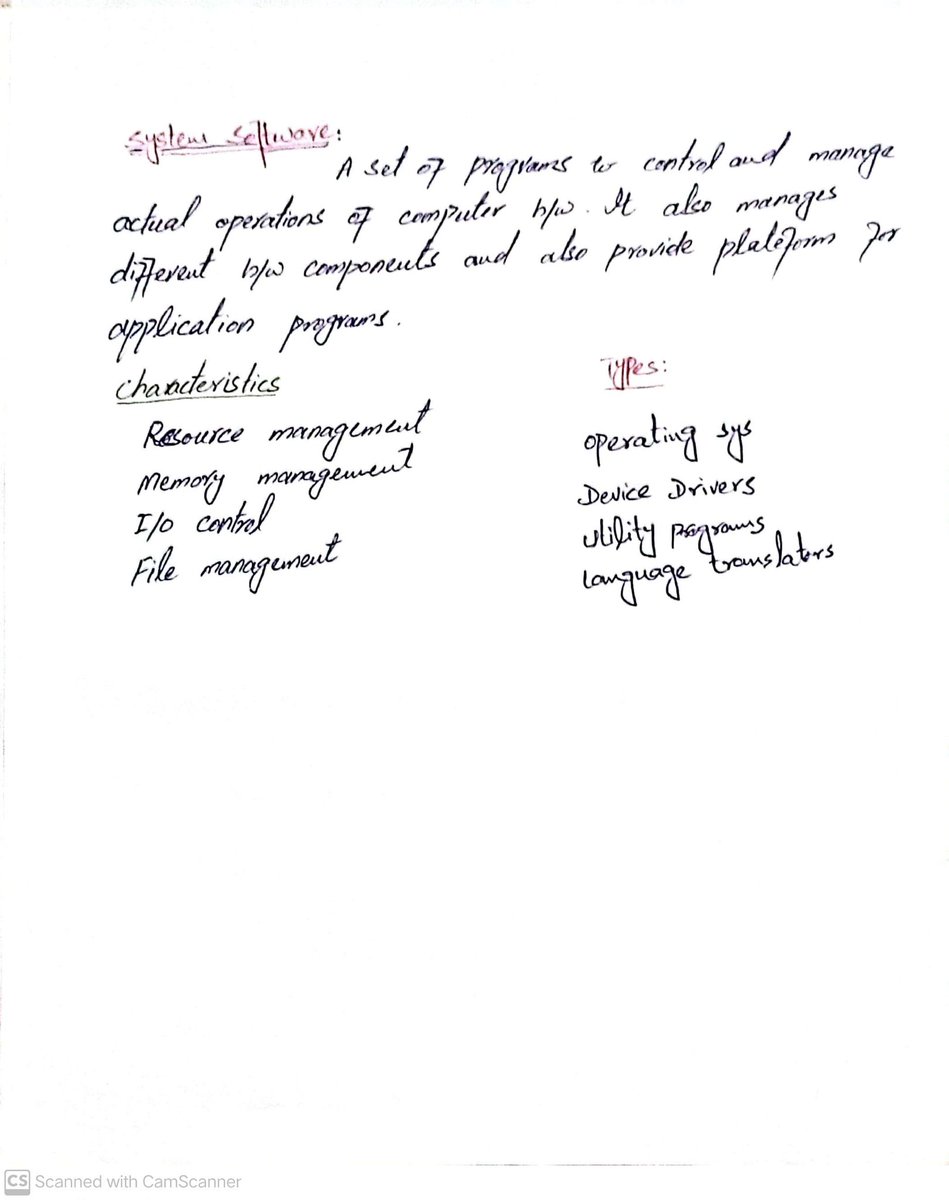 System Software:
A set of programs to control and manage
actual operations of computer h/w. It also manages
different h/w components and also provide plateform for
application programs.
Characteristics
Resource management
Memory management
I/o control
File management
Types:
operating sys
Device Drivers
utility programs
language translators
CS Scanned with CamScanner